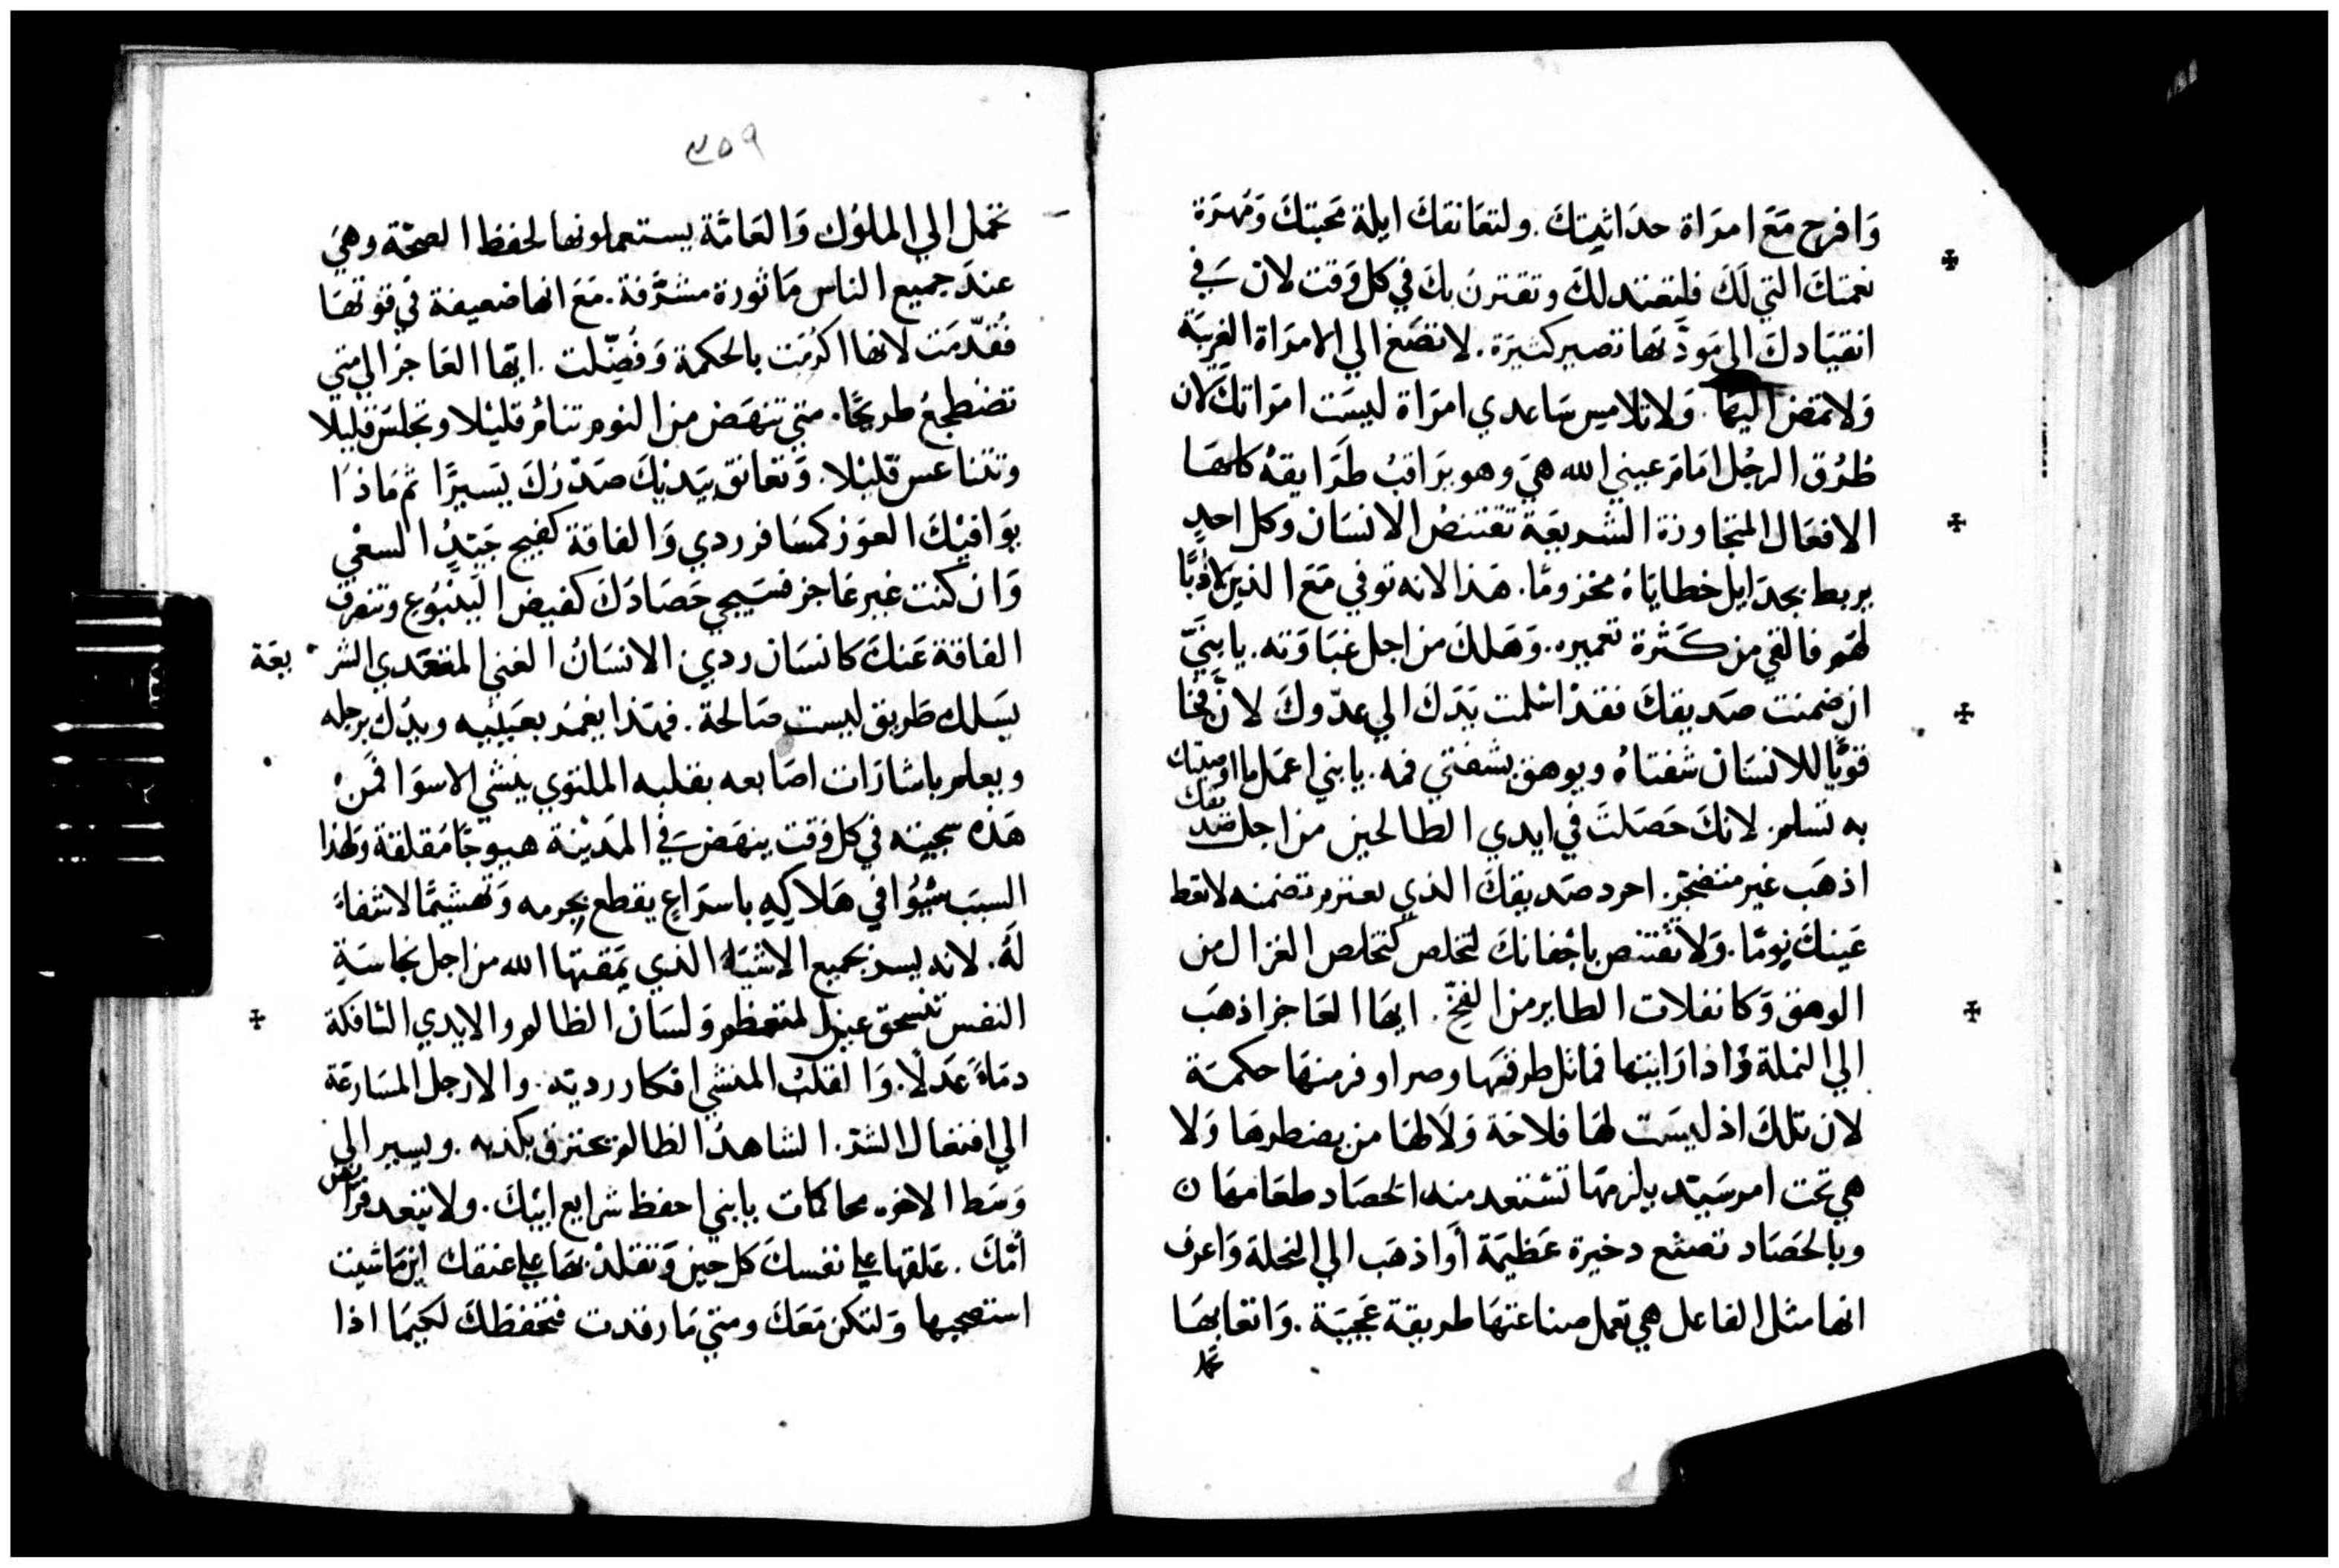 وَافرح مَعَ امرَاة حدَاثيتكَ. ولتعَانقكَ ايلة مَحبتكَ وَمُهرَة
نعمتكَ التي لَكَ فلتعتد لكَ وتقترن بكَ في كل وَقت لان في
انقيَادكَ الى مَودّتهَا تصير كثيرَة. لا تصَغ الي الامرَاة الغريبَة
وَلا تمض اليهَا. وَلا تلامس سَاعدي امرَاة ليسَت امرَاتكَ لان
طُرُق الرجُل امَام عيني الله هيَ وهو يرَاقبُ طرَايقهُ كلهَا
الافعَال المتجَاوزة الشريعَة تقتنصُ الانسَان وكل احدٍ
يربط بجدَايل خطايَاهُ مخزومًا. هَذا لانه توفي مَعَ الذين لا ادبًا
لهَم فالقي من كَثرة تعميره. وَهَلكَ من اجل غبَاوَته. يا بنَيّ
ان ضمنت صَديقكَ فقدْ اسْلمت يَدَكَ الي عدّوكَ لانَّ فخا
قويًّا للانسَان شفتاهُ ويوهق بشفتي فمه. يا بني اعمَل ما اوصيتك
به تسلم. لانكَ حَصَلتَ في ايدي الطالحين من اجل صَديقك
اذهَب غير متضجّر. احرد صَديقكَ الذي تعتزم تضمنه لا تعط
عَينكَ نومًا. وَلا تقتنص باجْفانكَ لتخلص كتخلص الغزال من
الوهق وَكانفلات الطاير من الفخّ. ايهَا العَاجز اذهَب
الي النملة وَاذا رَايتها فماثل طرقهَا وصر اوفر منهَا حكمَة
لان تلكَ اذ ليسَت لهَا فلاحَة وَلا لهَا من يضطرهَا وَلا
هي تحت امر سَيّد يلزمهَا تستعد منه الحصَاد طعَامهَا ن
وبالحَصَاد تصنع دخيرة عَظيمَة أو اذهَب الي النحلة وَاعرف
انها مثل الفاعل هي تعمل صناعتهَا طريقة عَجيبَة. وَاتعابهَا
٣٥٩
تحمل الي الملوك وَالعَامّة يستعملونها لحفظ الصحّة وهيَ
عندَ جميع الناس مَاثورة مشرّفة. مَعَ انها ضعيفة في قوتهَا
فقدّمَت لانها اكرمَت بالحكمة وَفُضّلت. ايّها العَاجز الي متي
تضطجعُ طريحًا. متي تنهَض من النوم تنام قليْلا وتجلسَ قليلا
وتتناعس قليْلا. وَتعانق بيَديْكَ صَدْرَكَ يَسيرًا ثم مَاذَا
يوَافيْكَ العَوَز كمسَافر ردي وَالفاقة كفيج جَيّدِ السعْي
وَان كنت غير عَاجز فسَيجي حَصَادَكَ كفيض اليَنبُوع وتنصرف
الفاقة عَنكَ كانسَان ردي. الانسَانُ الغني المتعَدي الشريعَة
يَسلك طَريق ليست صَالحَة. فهَذا يغمز بعَينيه ويدُك برجله
ويعلم باشارَات اصَابعه بقلبه الملتوي ينشي الاسوَا فمَنْ
هَذه سجيته في كل وَقت ينهَض في المَديْنة هيوجًا مقلقة ولهذا
السبَب يُوافي هَلاكه باسرَاع يقطع بجرمه وَتهشيمًا لا شفاءَ
لهُ. لانه يسر بجميع الاشيَاء الذي يَمقتها الله من اجل نجاسَةِ
النفس تنسحق عين المتعظم وَلسَان الظالم والايدي السَافكة
دمَاءً عَدلًا. وَالقلبُ المنشي افكار ردية. والارجل المسَارعَة
الي افتعال الشرّ. الشاهدُ الظالم يحترق بكذبه. ويسير الي
وَسَط الاخوه محاكمات يا بني احفظ شرايع ابيْكَ. ولا تبعد فرَايض
أمّكَ. عَلقها علي نفسكَ كل حين وَتقلدْ بهَا علي عنقك اينمَا شيت
استصحبها وَلتكن مَعَكَ ومتي مَا رقدت فتحفظكَ لكيمَا اذا